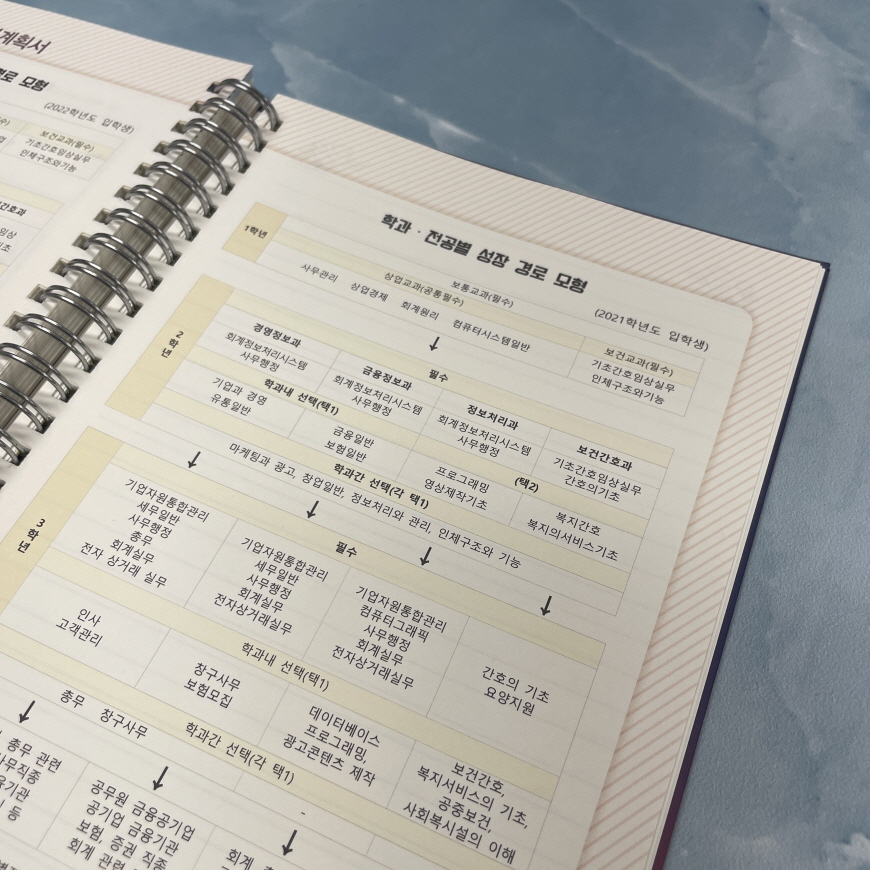 계획서
모형
(2022학년도 입학생)
보건교과(필수)
기초간호임상실무
인체구조와기능
학과 · 전공별 성장 경로 모형
(2021학년도 입학생)
1학년
보통교과(필수)
상업교과(공통필수)
사무관리 상업경제 회계원리 컴퓨터시스템일반
보건교과(필수)
기초간호임상실무
인체구조와기능
↓
2학년
필수
경영정보과
회계정보처리시스템
사무행정
금융정보과
회계정보처리시스템
사무행정
정보처리과
회계정보처리시스템
사무행정
보건간호과
기초간호임상실무
간호의기초
학과내 선택(택1)
(택2)
기업과 경영
유통일반
금융일반
보험일반
프로그래밍
영상제작기초
복지간호
복지의서비스기초
학과간 선택(각 택1)
마케팅과 광고, 창업일반, 정보처리와 관리, 인체구조와 기능
↓ ↓ ↓ ↓
3학년
필수
기업자원통합관리
세무일반
사무행정
총무
회계실무
전자 상거래 실무
기업자원통합관리
세무일반
사무행정
회계실무
전자상거래실무
기업자원통합관리
컴퓨터그래픽
사무행정
회계실무
전자상거래실무
간호의 기초
요양지원
학과내 선택(택1)
인사
고객관리
창구사무
보험모집
데이터베이스
프로그래밍,
광고콘텐츠 제작
보건간호,
복지서비스의 기초,
공중보건,
사회복시설의 이해
학과간 선택(각 택1)
총무 창구사무
-
↓ ↓ ↓
총무 관련
사무직종
등
공무원 금융공기업
공기업 금융기관
보험, 증권 직종
회계 관련
회계